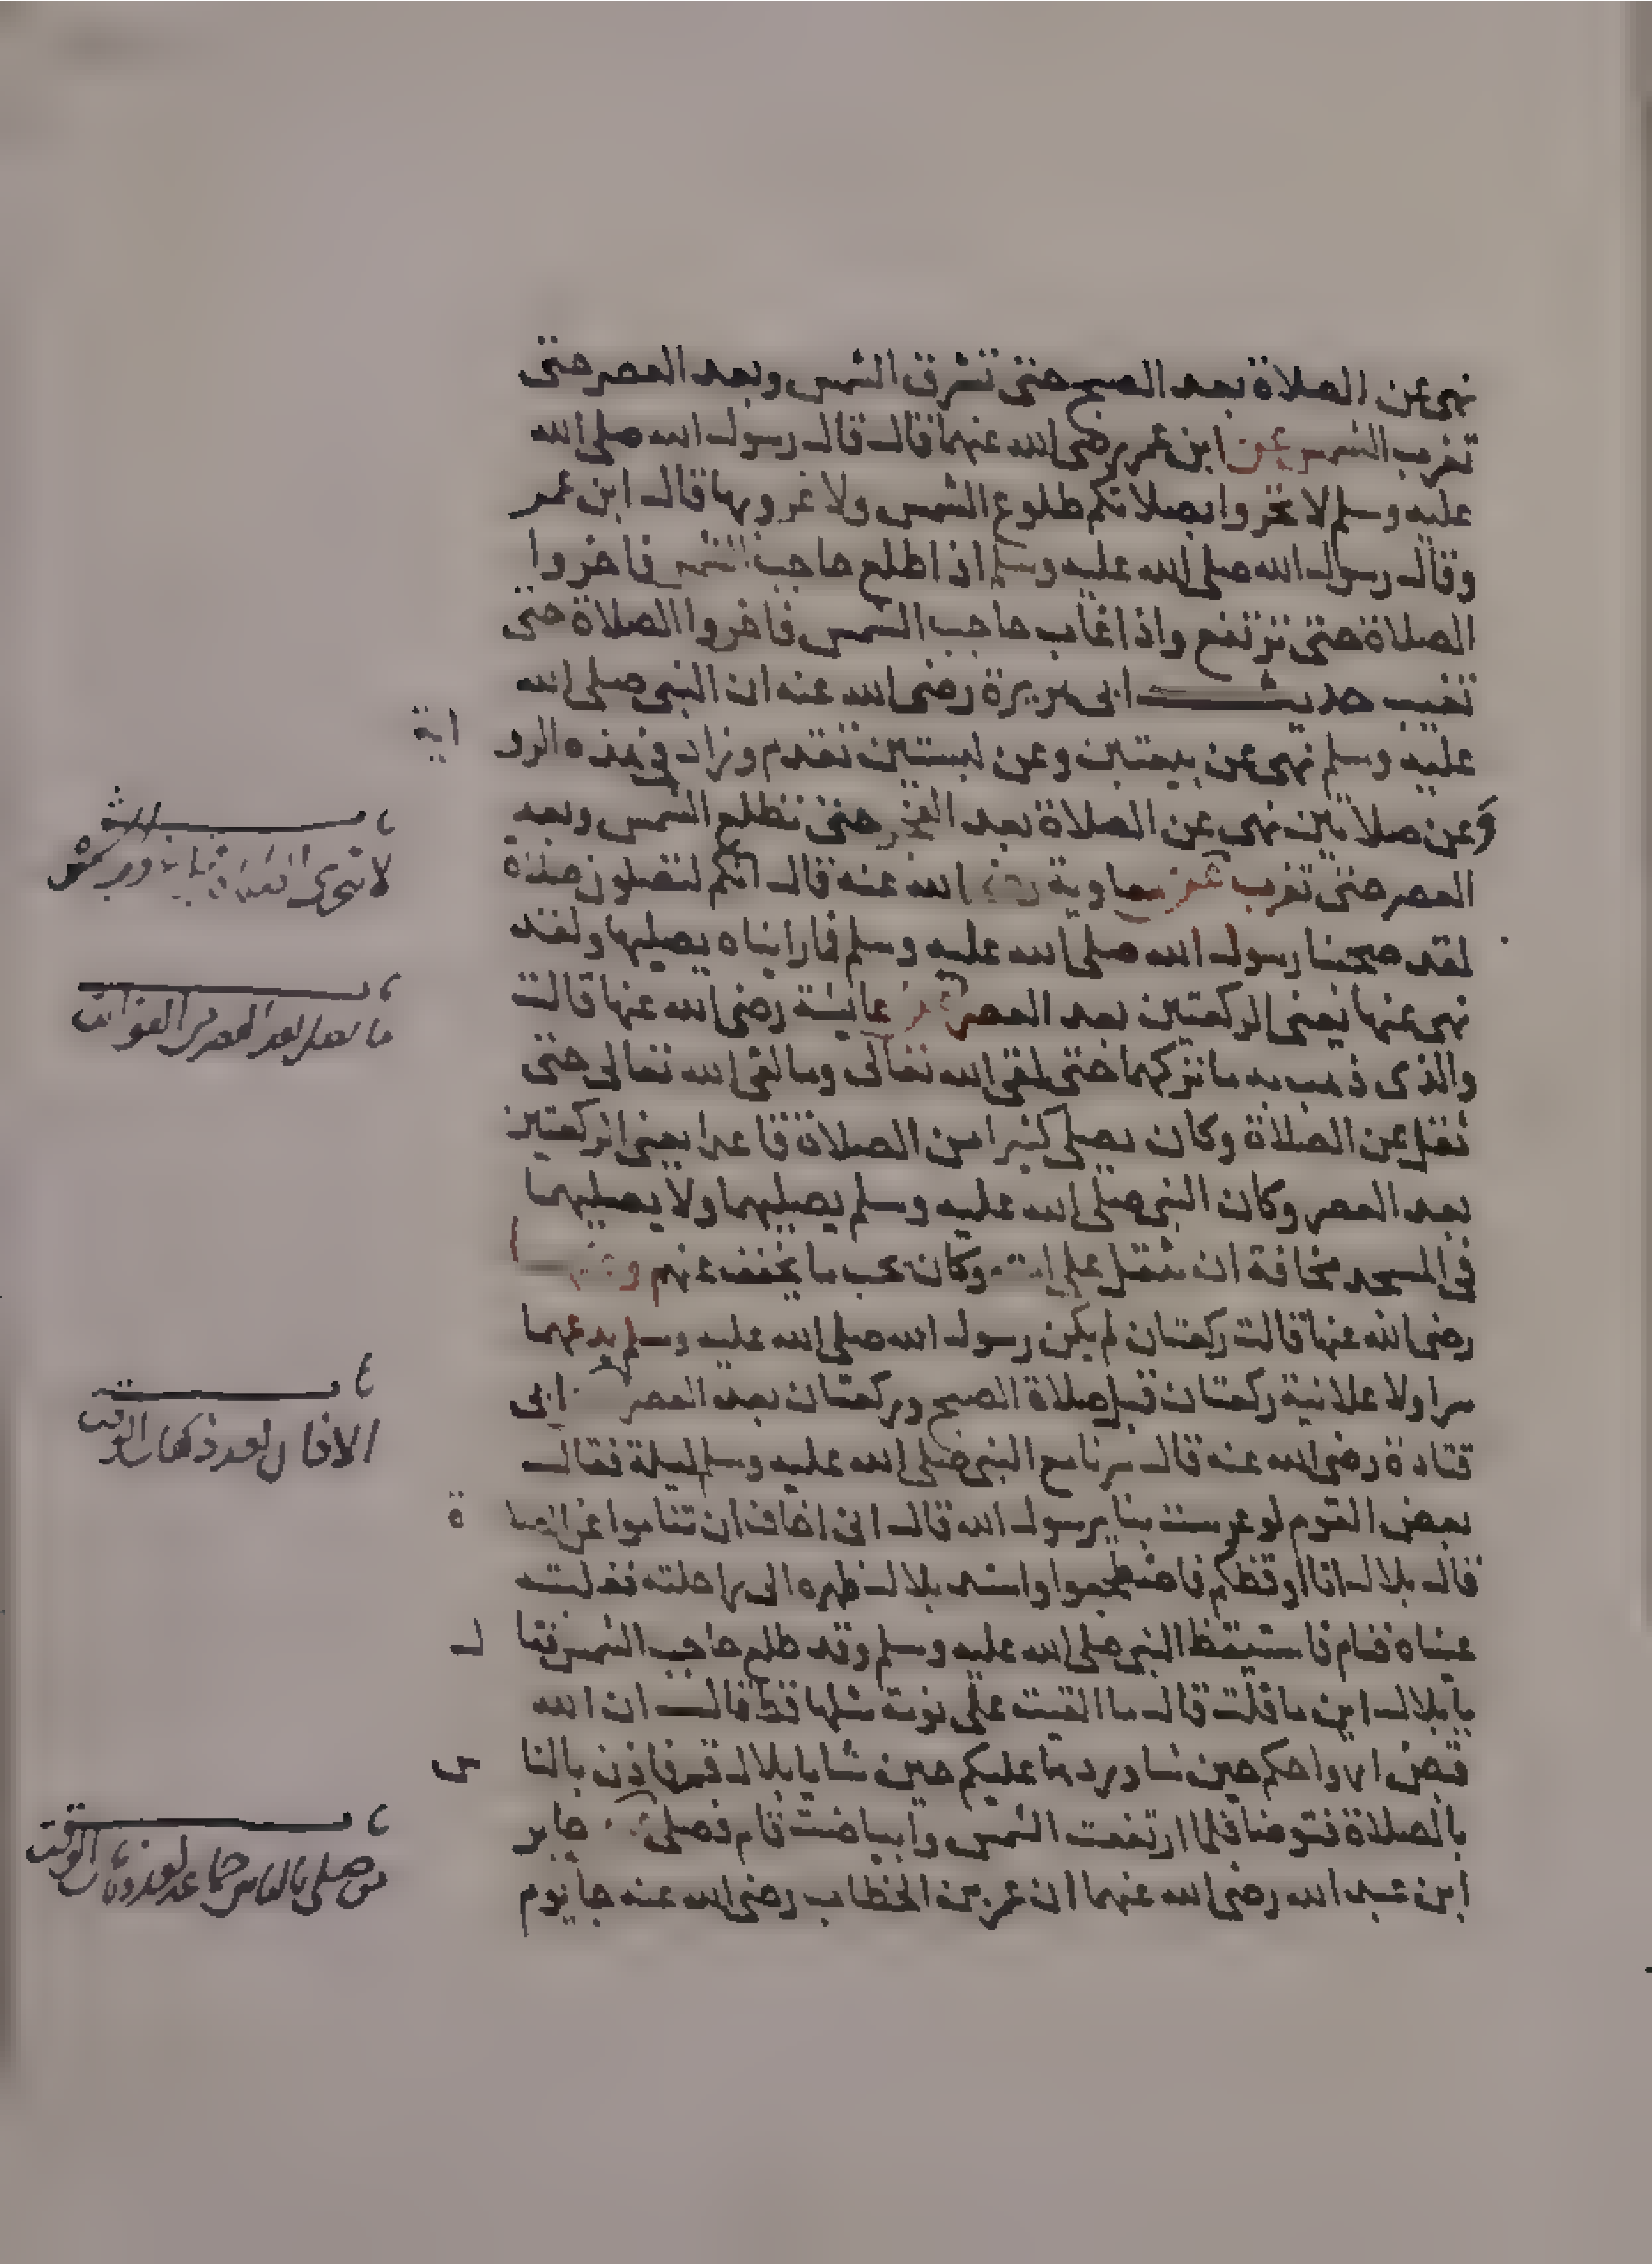 نهى عن الصلاة بعد الصبح حتى تشرق الشمس وبعد العصر حتى
تغرب الشمس عن ابن عمر رضى الله عنهما قال قال رسول الله صلى الله
عليه وسلم لا تحروا بصلاتكم طلوع الشمس ولا غروبها قال ابن عمر
وقال رسول الله صلى الله عليه وسلم اذا طلع حاجب الشمس فاخروا
الصلاة حتى ترتفع واذا غاب حاجب الشمس فاخروا الصلاة حتى
تغيب حديث ابى هريرة رضى الله عنه ان النبى صلى الله
عليه وسلم نهى عن بيعتين وعن لبستين تقدم وزاد فى هذه الرو اية
وعن صلاتين نهى عن الصلاة بعد الفجر حتى تطلع الشمس وبعد
العصر حتى تغرب عن معاوية رضى الله عنه قال انكم لتصلون صلاة
لقد صحبنا رسول الله صلى الله عليه وسلم فما رايناه يصليها ولقد
نهى عنها يعنى الركعتين بعد العصر عن عايشة رضى الله عنها قالت
والذى ذهب به ما تركهما حتى لقى الله تعالى وما لقى الله تعالى حتى
ثقل عن الصلاة وكان يصلى كثيرا من الصلاة قاعدا يعنى الركعتين
بعد العصر وكان النبى صلى الله عليه وسلم يصليهما ولا يصليهما
فى المسجد مخافة ان يثقل على امته وكان يحب ما يخفف عنهم
رضى الله عنها قالت ركعتان لم يكن رسول الله صلى الله عليه وسلم يدعهما
سرا ولا علانية ركعتان قبل صلاة الصبح وركعتان بعد العصر ابى
قتادة رضى الله عنه قال سرنا مع النبى صلى الله عليه وسلم ليلة فقال
بعض القوم لو عرست بنا يرسول الله قال انى اخاف ان تناموا عن الصلا ة
قال بلال انا اوقظكم فاضطجعوا واسند بلال ظهره الى راحلته فغلبته
عيناه فنام فاستيقظ النبى صلى الله عليه وسلم وقد طلع حاجب الشمس فقا ل
يا بلال اين ما قلت قال ما القيت على نومة مثلها قط قال ان الله
قبض ارواحكم حين شا وردها عليكم حين شا يا بلال قم فاذن بالنا س
بالصلاة فتوضا فلما ارتفعت الشمس وابياضت قام فصلى عن جابر
ابن عبد الله رضى الله عنهما ان عمر بن الخطاب رضى الله عنه جا يوم
باب
لا تتحرى الصلاة
باب
ما يصلى بعد العصر من الفوائت
باب
الاذان بعد ذهاب الوقت
باب
من صلى بالناس جماعة بعد ذهاب الوقت